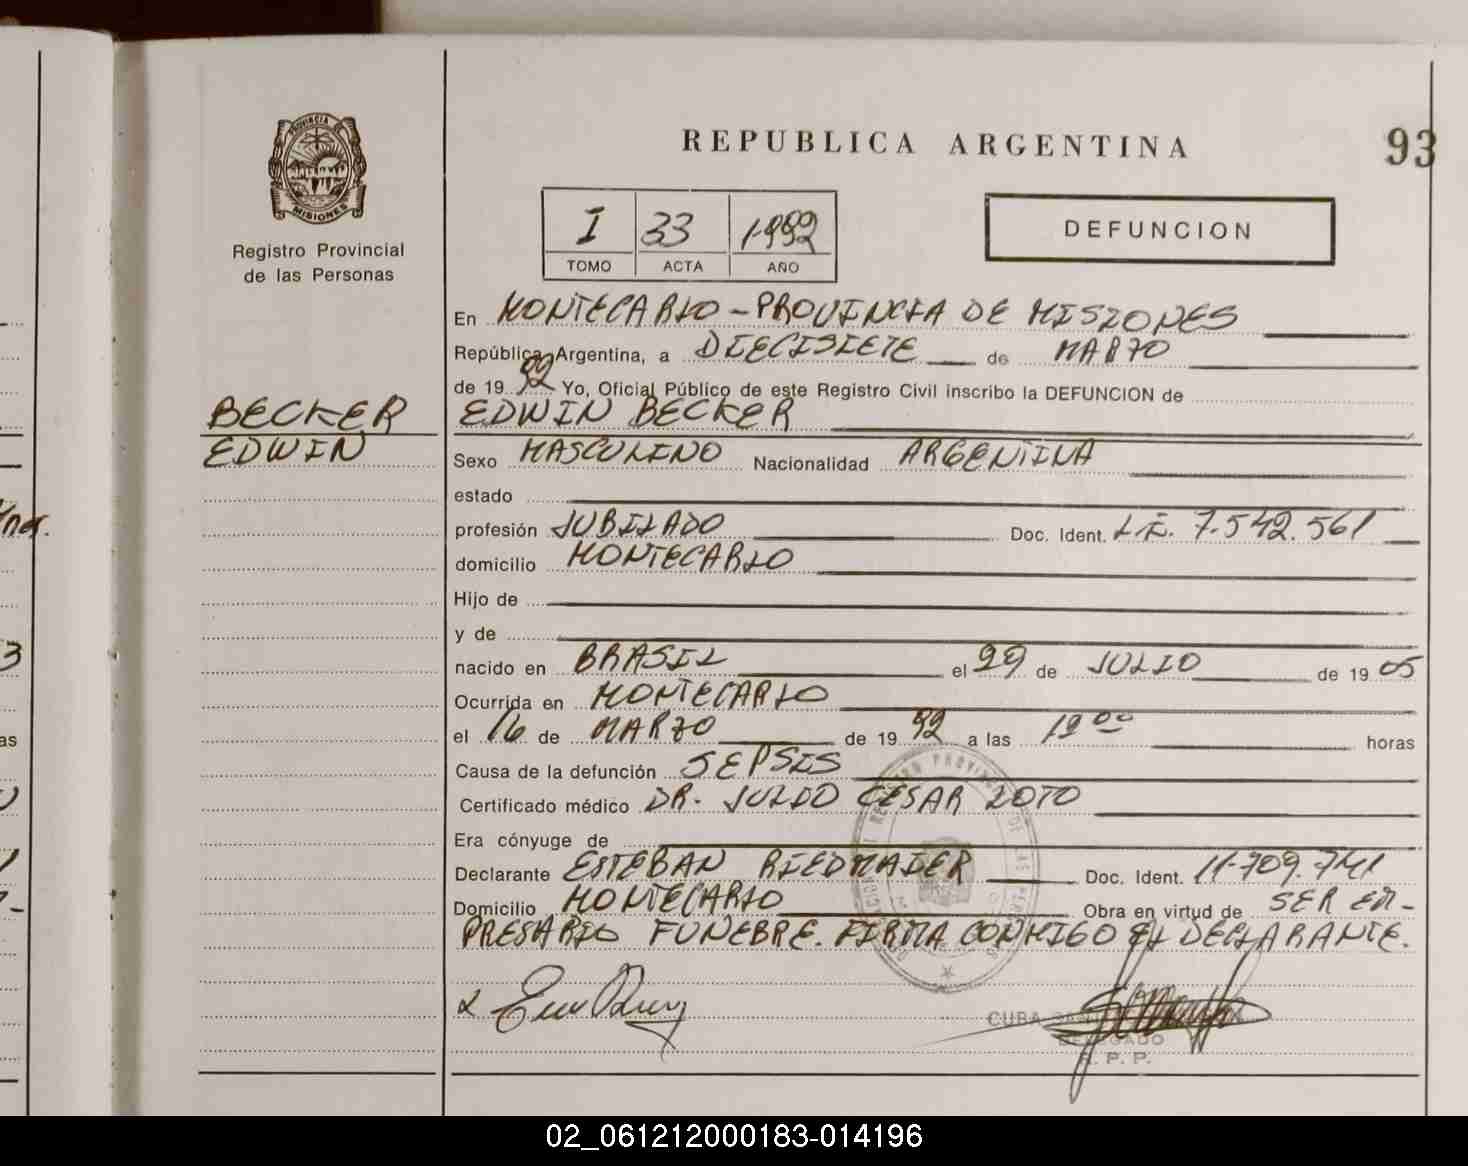 REPUBLICA ARGENTINA
93
PROVINCIA DE
MISIONES
Registro Provincial
de las Personas
I 33 1992
TOMO ACTA AÑO
DEFUNCION
En MONTECARLO - PROVINCIA DE MISIONES
República Argentina, a DIECISIETE de MARZO
de 19 92 Yo, Oficial Público de este Registro Civil inscribo la DEFUNCION de
BECKER
EDWIN
EDWIN BECKER
Sexo MASCULINO Nacionalidad ARGENTINA
estado
profesión JUBILADO Doc. Ident. L.E. 7.542.561
domicilio MONTECARLO
Hijo de
y de
nacido en BRASIL el 29 de JULIO de 19 05
Ocurrida en MONTECARLO
el 16 de MARZO de 19 92 a las 19 00 horas
Causa de la defunción SEPSIS
Certificado médico DR. JULIO CESAR LOTO
Era cónyuge de
Declarante ESTEBAN RIEDMAIER Doc. Ident. 11.709.741
Domicilio MONTECARLO Obra en virtud de SER EM-
PRESARIO FUNEBRE. FIRMA CONMIGO EL DECLARANTE.
CUBA
DELEGADO
R. P. P.
02_061212000183-014196